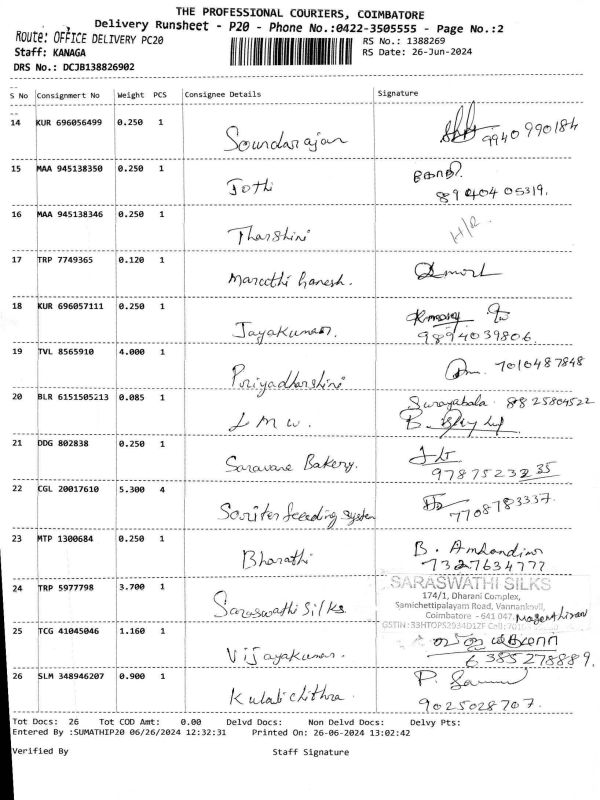 THE PROFESSIONAL COURIERS, COIMBATORE
Delivery Runsheet - P20 - Phone No.:0422-3505555 - Page No.:2
Route: OFFICE DELIVERY PC20
RS No.: 1388269
Staff: KANAGA
RS Date: 26-Jun-2024
DRS No.: DCJB138826902
S No Consignmert No Weight PCS Consignee Details Signature
14 KUR 696056499 0.250 1 Soundarajan 9940990184
15 MAA 945138350 0.250 1 Jothi ஜோதி
8940405319.
16 MAA 945138346 0.250 1 Tharshini H/R
17 TRP 7749365 0.120 1 Maruthi Ganesh.
18 KUR 696057111 0.250 1 Jayakumar.
9894039806.
19 TVL 8565910 4.000 1 Priyadharshini 7010487848
20 BLR 6151505213 0.085 1 L M W. Surayabala. 8825804522
21 DDG 802838 0.250 1 Saravana Bakery.
9787523235
22 CGL 20017610 5.300 4 feeding system 7708783337.
23 MTP 1300684 0.250 1 Bharathi B.
7327634777
24 TRP 5977798 3.700 1 Saraswathi Silks
SARASWATHI SILKS
174/1, Dharani Complex,
Samichettipalayam Road, Vannankovil,
Coimbatore - 641 047.
GSTIN:
25 TCG 41045046 1.160 1 Vijayakumar.
6385278889.
26 SLM 348946207 0.900 1 P.
9025028707.
Tot Docs: 26 Tot COD Amt: 0.00 Delvd Docs: Non Delvd Docs: Delvy Pts:
Entered By :SUMATHIP20 06/26/2024 12:32:31 Printed On: 26-06-2024 13:02:42
Verified By Staff Signature